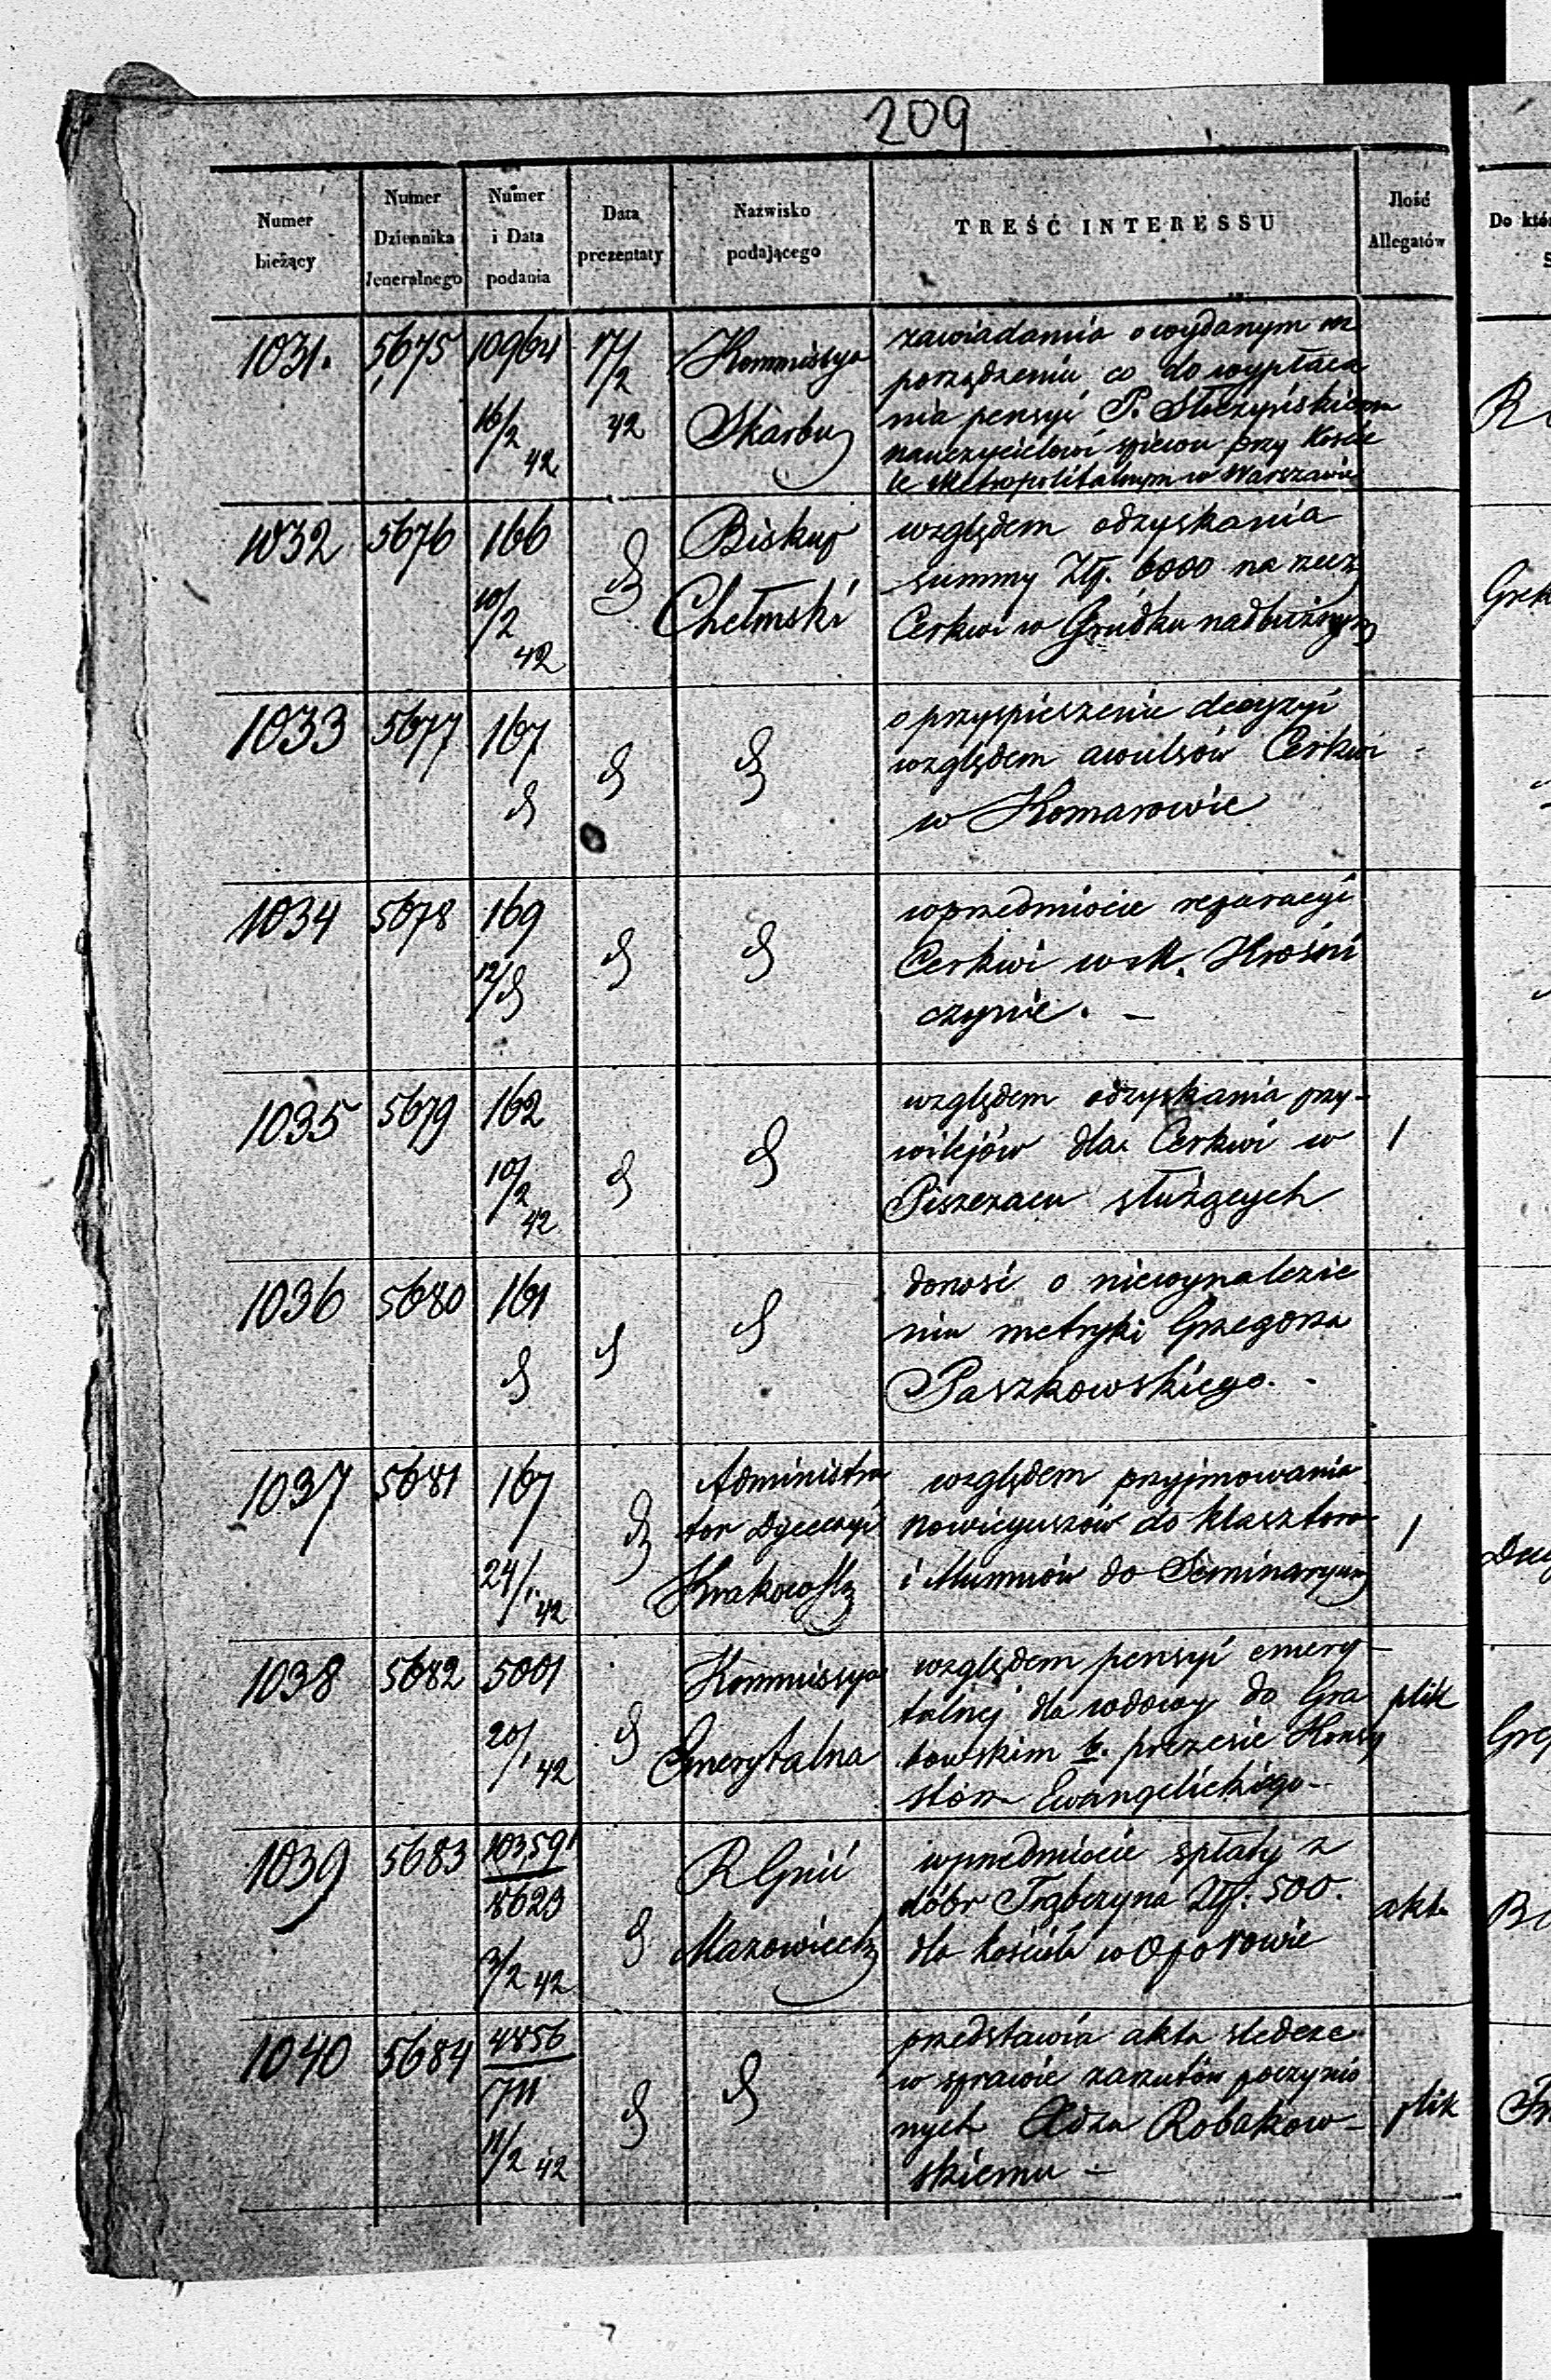 209
Numer bieżący
Numer Dziennika Jeneralnego
Numer i Data podania
Data prezentaty
Nazwisko podającego
TREŚĆ INTERESSU
Ilość Allegatów
Do któ
S
1031.
5675
10964
16/2 42
17/2 42
Kommissya
Skarbu
zawiadamia o wydanym roz
porządzeniu co do wypłaca
nia pensyi P. Stoczyńskiemu
nauczycielowi spiewu przy Koście
le Metropolitalnym w Warszawie
1032
5676
166
10/2 42
d
Biskup
Chełmski
względem odzyskania
summy Złp. 6000 na rzecz
Cerkwi w Grudku nadbużnym
Grek
1033
5677
167
d
d
d
o przyspieszenie decyzyi
względem awulsów Cerkwi
w Komarowie
1034
5678
169
12/d
d
d
w przedmiocie reparacyi
Cerkwi w M. Hrośni
czynie. —
1035
5679
162
10/2 42
d
d
względem odzyskania przy-
wilejów dla Cerkwi w
Piszczacu służących
1
1036
5680
161
d
d
d
donosi o niewynalezie
niu metryki Grzegorza
Paszkowskiego. -
1037
5681
167
24/1 42
d
Administra
tor Dyecezyi
Krakowsk
względem przyjmowania
nowicyuszów do klasztorów
i Alumnów do Seminaryum
1
1038
5682
5001
20/1 42
d
Kommissya
Emerytalna
względem pensyi emery-
talnej dla wdowy do Gra
bowskim b. prezesie Konsy
storza Ewangelickiego -
plik
1039
5683
10359
18623
3/2 42
d
R Gnii
Mazowieck
w przedmiocie spłaty z
dóbr Trąbczyna Złp. 500.
dla kościoła w Oporowie
akta
1040
5684
4856
711
11/2 42
d
d
przedstawia akta śledcze
w sprawie zarzutów poczynio
nych Xdzu Robakow-
skiemu -
plik